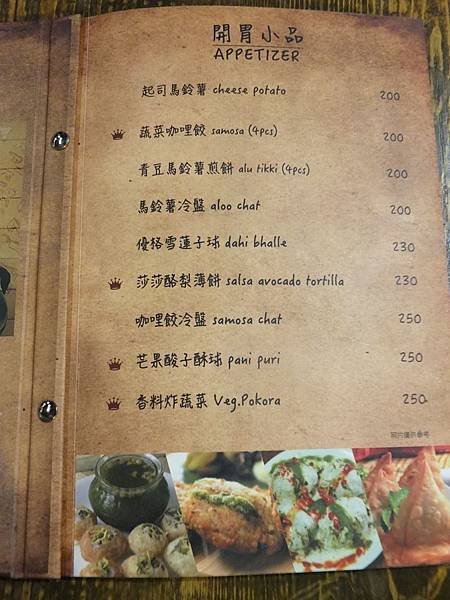 開胃小品
APPETIZER
起司馬鈴薯 cheese potato 200
蔬菜咖哩餃 samosa (4pcs) 200
青豆馬鈴薯煎餅 alu tikki (4pcs) 200
馬鈴薯冷盤 aloo chat 200
優格雪蓮子球 dahi bhalle 230
莎莎酪梨薄餅 salsa avocado tortilla 230
咖哩餃冷盤 samosa chat 250
芒果酸子酥球 pani puri 250
香料炸蔬菜 Veg.Pokora 250
照片僅供參考